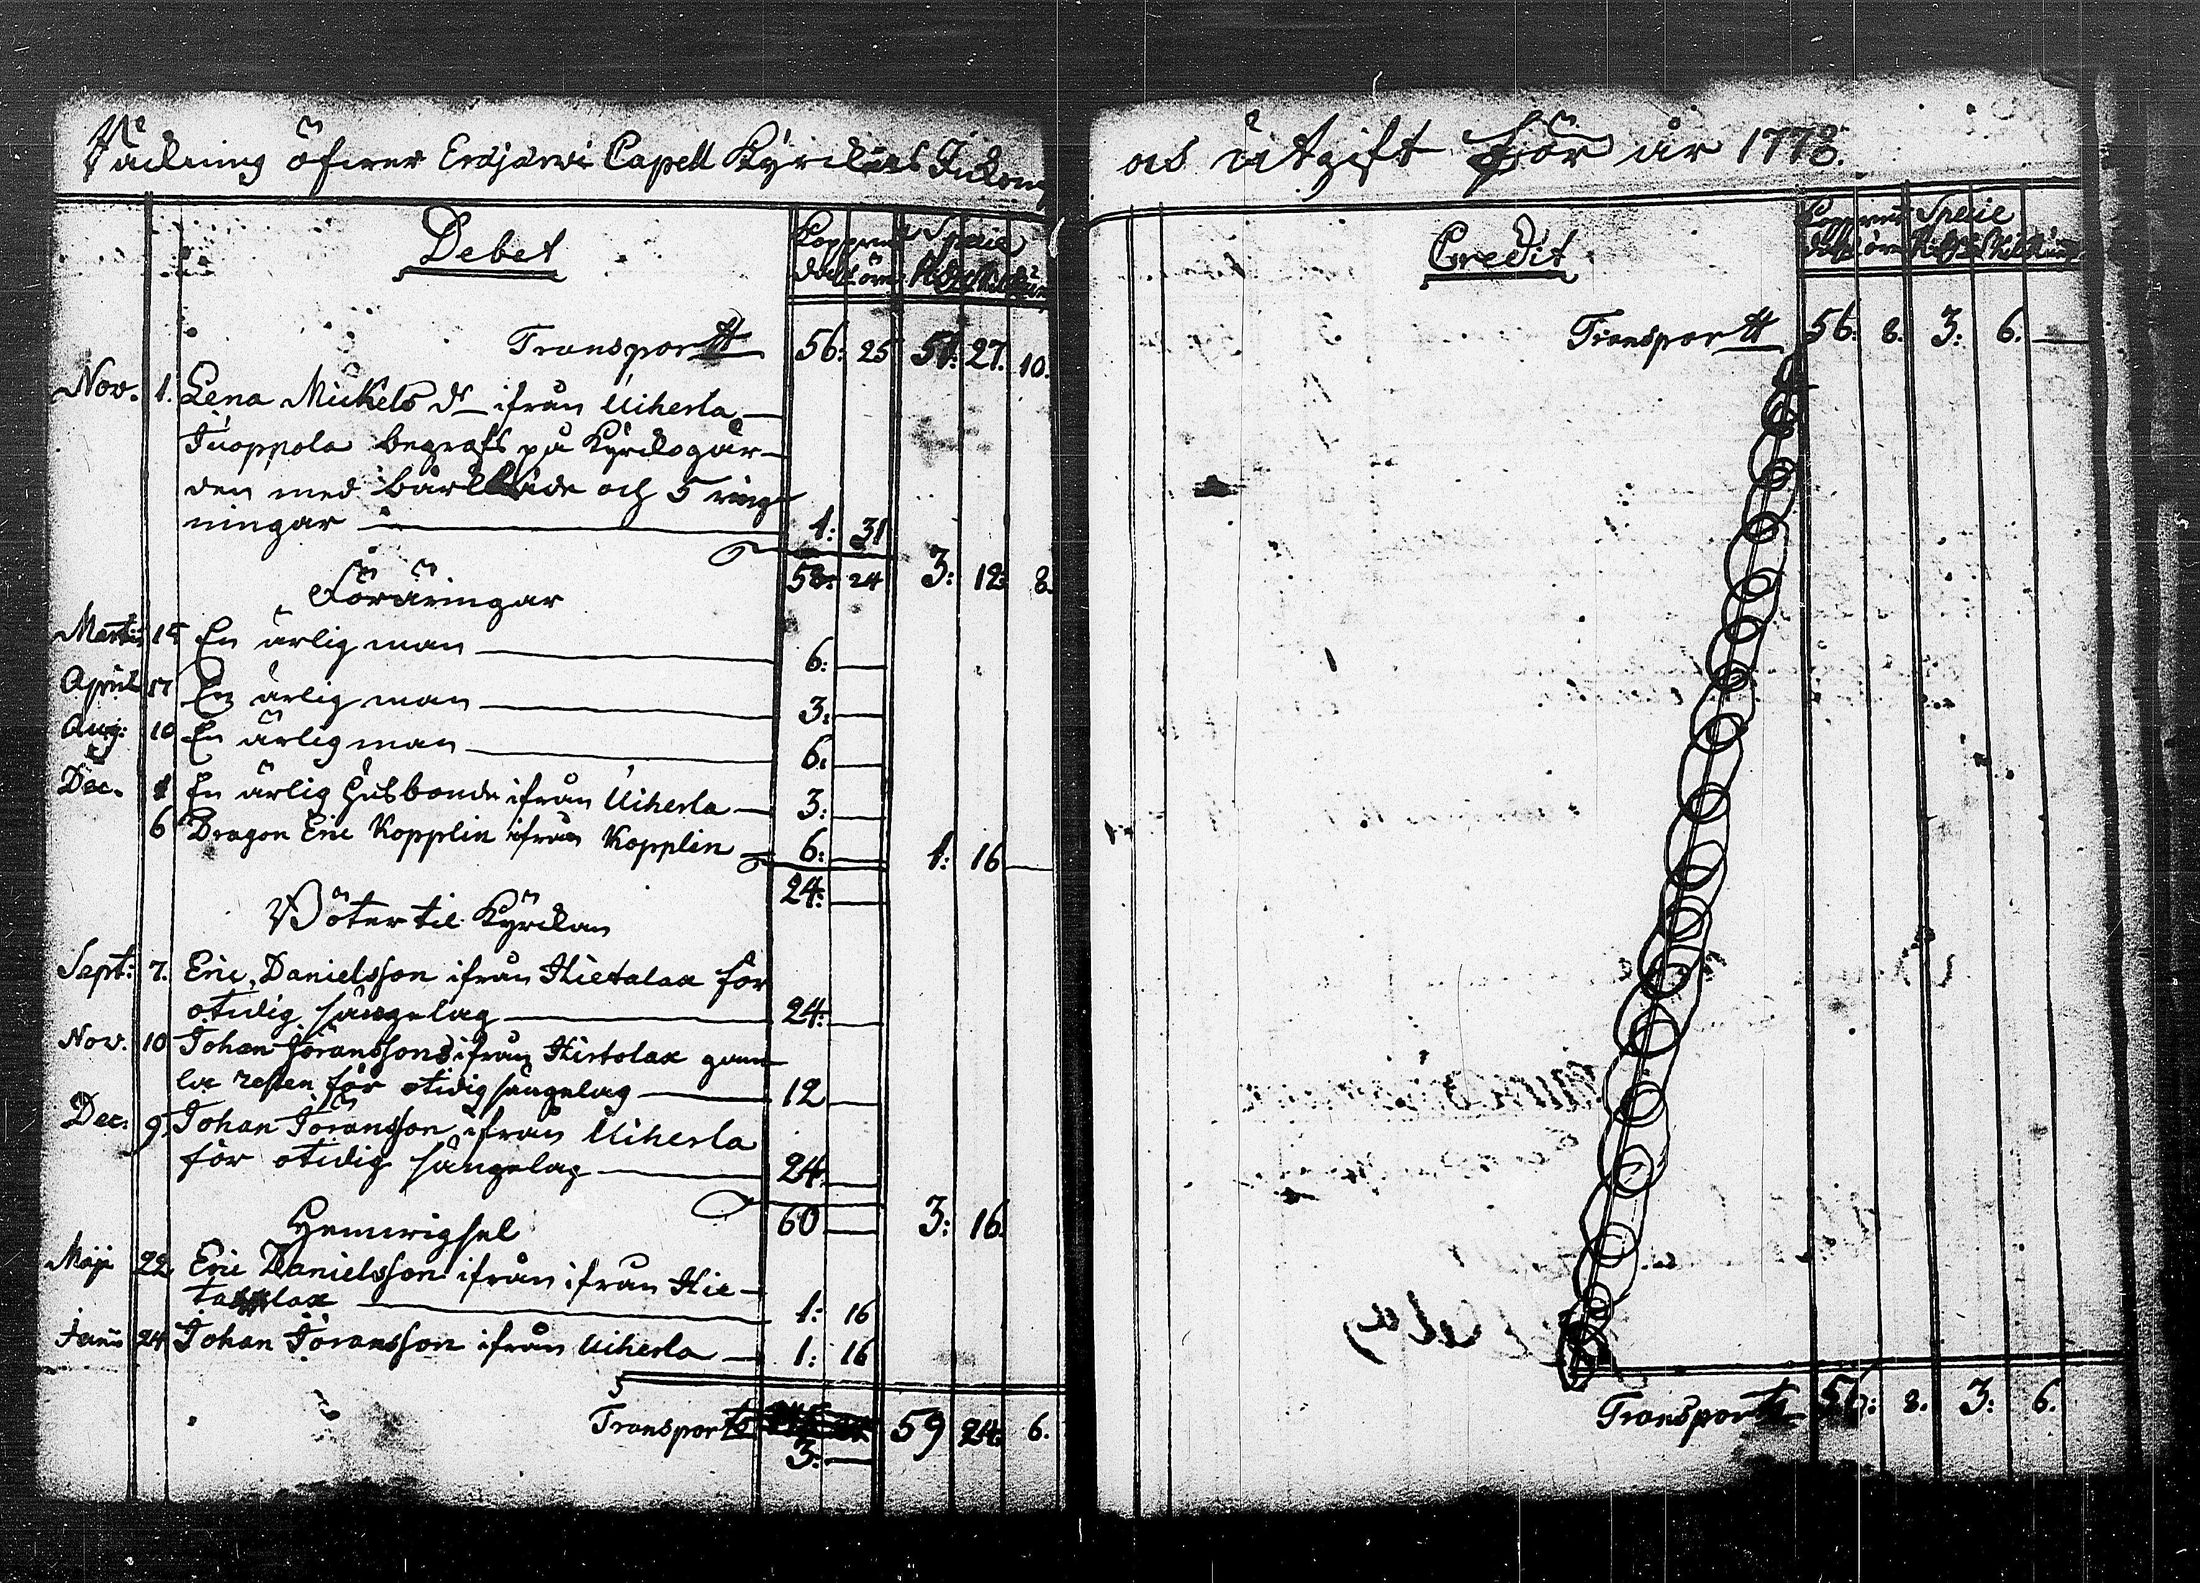 Räckning öfwer Eräjärwi Capell Kyrckas Inkom
Debet
Kopparmt Specie
dal öre Rd Skil
Transportt 56: 25 51: 27. 10.
Nov. 1. Lena Mickels dr ifrån Uiherla
Juoppola begrafs på Kyrckogår-
den med bårkläde och 5 ring
ningar 1: 31
58: 24 3: 12: 8
Föräringar
Martii 15 En ärlig man 6:
April 17 En ärlig man 3:
Aug: 10 En ärlig man 6:
Dec. 1 En ärlig Husbonde ifrån Uiherla 3:
6 Dragon Eric Kopplin ifrån Kopplin 6: 1: 16
24:
Böter til Kyrckan
Sept: 7. Eric Danielsson ifrån Hietalax för
otidig sängelag 24:
Nov. 10 Johan Jöranssons ifrån Hirtolax gam
la resten för otidig sängelag 12
Dec: 9. Johan Jöransson ifrån Uiherla
för otidig sängelag 24
60 3: 16.
Hemwigsel
Maji 22 Eric Danielsson ifrån ifrån Hie-
talax 1: 16
Janu 24 Johan Jöransson ifrån Uiherla 1: 16
Transport 59 24: 6.
3:
och utgift för år 1778.
Credit
Kopparmt Specie
dal öre Skil
Transportt 56: 8. 3: 6.
Transportt 56: 8. 3: 6.